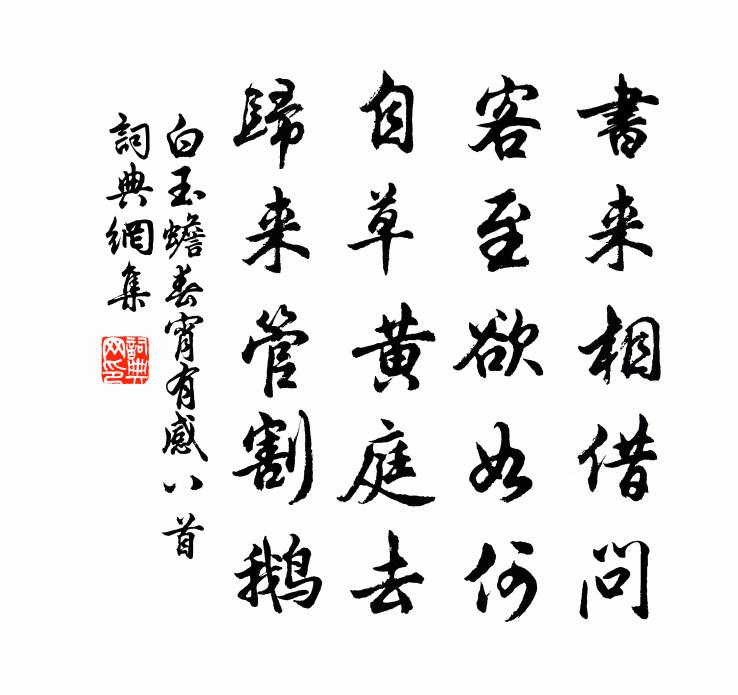 書来相借問
客至欲如何
自草黄庭去
歸来管割鵝
白玉蟾春宵有感八首
詞典網集
詞典网印